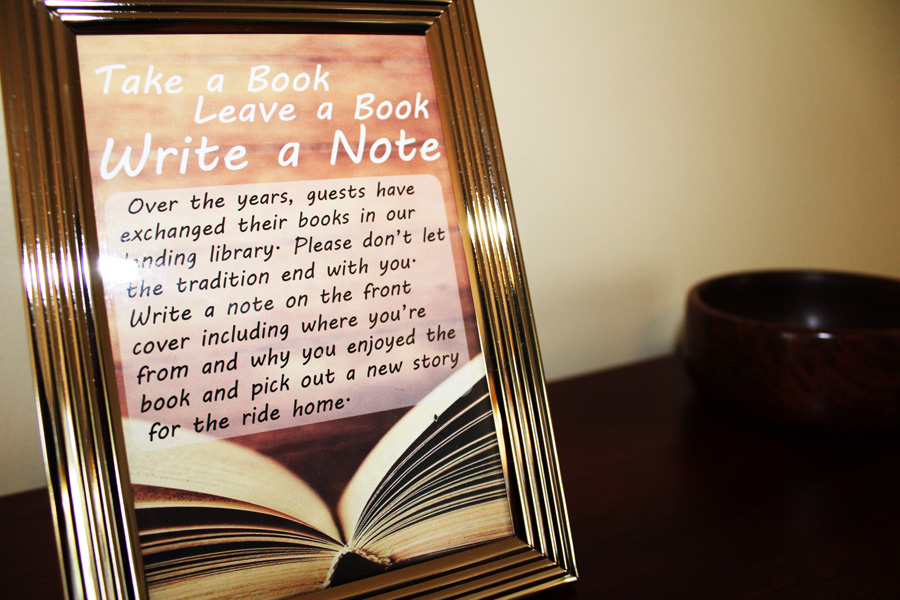 Take a Book
Leave a Book
Write a Note
Over the years, guests have
exchanged their books in our
lending library. Please don't let
the tradition end with you.
Write a note on the front
cover including where you're
from and why you enjoyed the
book and pick out a new story
for the ride home.